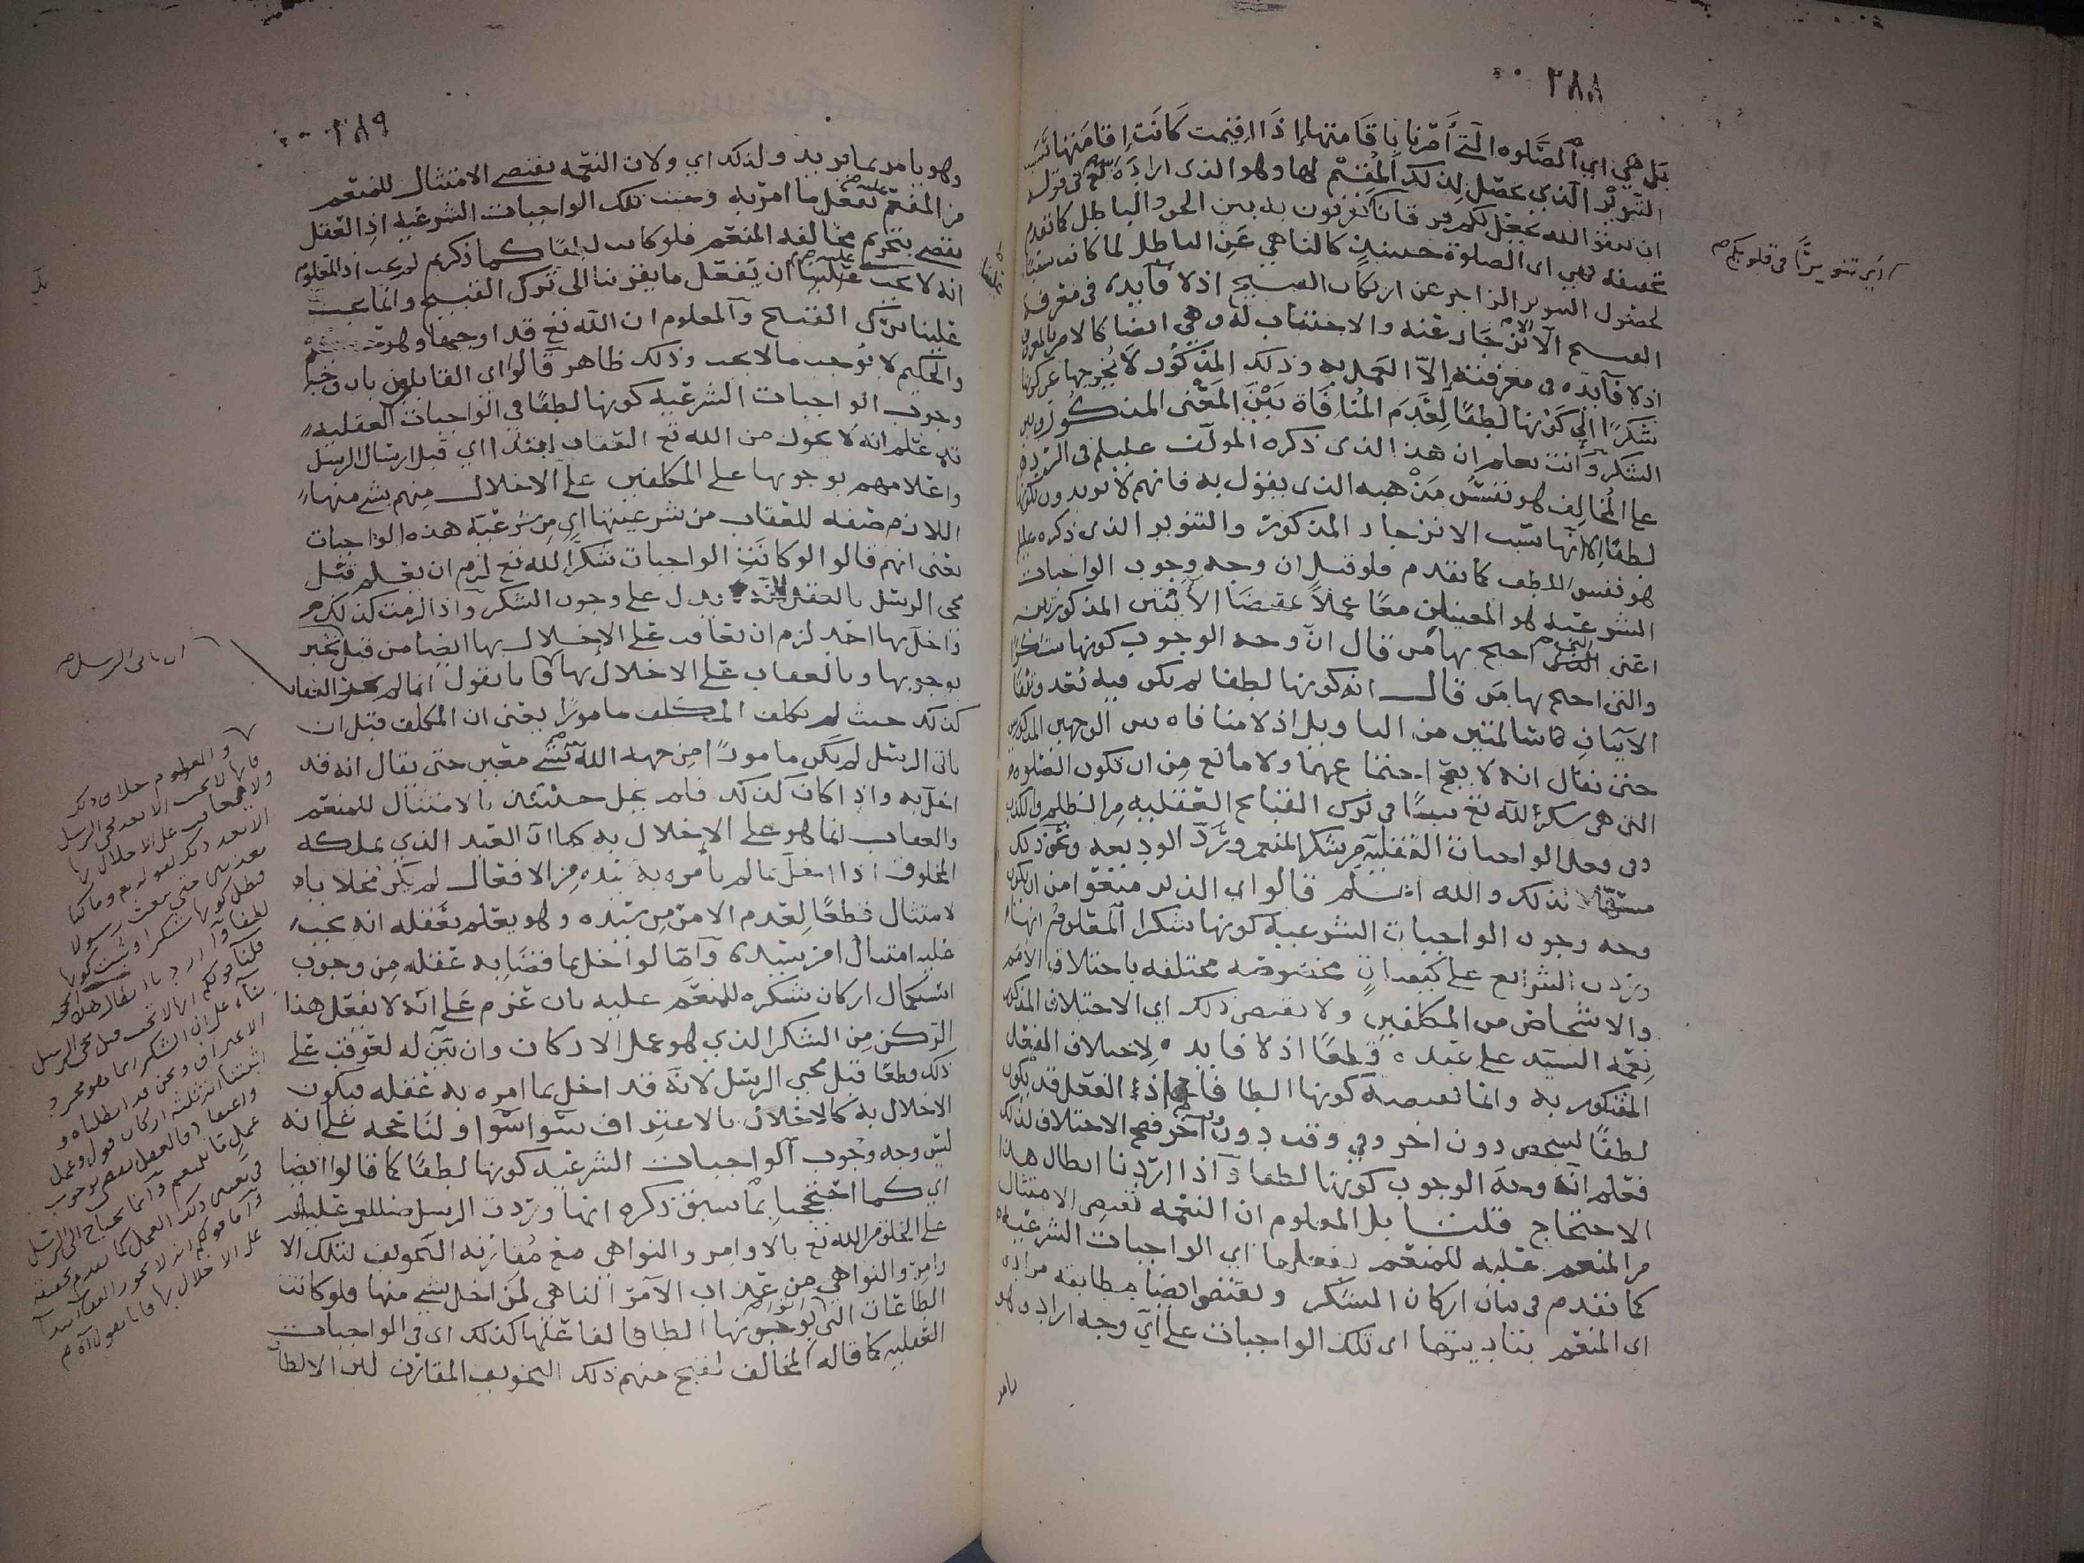 ٢٨٨
بل هي اي الصلوة التي أمرنا باقامتها إذا اقيمت كانت اقامتها سبب
التنوير الذي يحصل لذلك المقيم لها وهو الذي اراده تع في قوله
ان تتقوا الله يجعل لكم فرقانا تفرقون به بين الحق والباطل كما تقدم
تحقيقه فهي اى الصلوة حينئذ كالناهي عن الباطل لما كانت سببا
لحصول التنوير الزاجر عن ارتكاب القبيح اذ لا فايدة في معرفة
القبيح الا الانزجار عنه والاجتناب له وهي ايضا كالامر بالمعروف
اذ لا فآيدة في معرفته إلاّ العمل به وذلك المذكور لا يخرجها عن كونها
شكرًا إلى كونها لطفًا لعدم المنافاة بين المعنى المذكور وبين
الشكر وأنت تعلم ان هذا الذى ذكره المؤلف عليلم في الرد
على المخالف هو نفس مذهبه الذى يقول به فانهم لا يريدون بكونها
لطفا إلا انها سبب الانزجار المذكور والتنوير الذى ذكره عليلم
هو نفس اللطف كما تقدم فلو قيل ان وجه وجوب الواجبات
الشرعية هو المعنيان معًا عملاً بمقتضا الآيتين المذكورتين
اعني التى احتج بها من قال انّ وجه الوجوب كونها شكرًا
والتى احتج بها من قال انه كونها لطفا لم يكن فيه بعد وتبقا
الآيتان سالمتين من التاويل اذ لا منافاه بين الوجهين المذكورين
حتى يقال انه لا يصح اجتماعهما ولا مانع من ان تكون الصلوة
التى هي شكر لله تع سببًا في ترك القبايح العقليه من الظلم والكذب
وفي فعل الواجبات العقلية من شكر المنعم ورد الوديعه ونحو ذلك
لذلك والله اعلم قالوا اى الذين منعوا من ان يكون
وجه وجوب الواجبات الشرعية كونها شكرا المعلوم انها
وردت الشرايع على كيفيات مخصوصة مختلفه باختلاف الامم
والاشخاص من المكلفين ولا يقتضي ذلك اي الاختلاف المذكور
نعمه السيد على عبده قطعًا اذ لا فايدة لاختلاف الفعل
المشكور به وانما تقتضيه كونها الطافا اذ الفعل قد يكون
لطفًا لشخص دون اخر وفي وقت دون آخر فصح الاختلاف لذلك
فعلم انه وجه الوجوب كونها لطفا وآذا اردنا ابطال هذا
الاحتجاج قلنا بل المعلوم ان النعمه تقتضي الامتثال
من المنعم عليه للمنعم بفعلها اي الواجبات الشرعية
كما تقدم في بيان اركان الشكر وتقتضي ايضا مطابقة مراده
اى المنعم بتاديتها اى تلك الواجبات على اي وجه اراده وهو
يامر
اي تنويرًا في قلوبكم
٢٨٩
وهو يامر بما يريد ولذلك اي ولان النعمه تقتضي الامتثال للمنعم
من المنعم عليه بفعل ما امر به وجبت تلك الواجبات الشرعيه اذ العقل
يقضي بتحريم مخالفه المنعم فلو كانت لطفا كما ذكرتم لم يجب اذ المعلوم
انه لا يجب علينا ان نفعل ما يقربنا الى ترك القبيح وانما يجب
علينا ترك القبيح والمعلوم ان الله تع قد اوجبها وهو حكيم
والحكيم لا يوجب ما لا يجب وذلك ظاهر قالوا اى القايلون بان وجه
وجوب الواجبات الشرعيه كونها لطفًا في الواجبات العقليه
قد علم انه لا يجوز من الله تع العقاب ابتداا اي قبل ارسال الرسل
واعلامهم بوجوبها على المكلفين على الاخلال منهم بشي منها
اللازم صفه للعقاب من شرعيتها اي من شرعية هذه الواجبات
يعني انهم قالوا لو كانت الواجبات شكرًا لله تع لزم ان يعلم قبل
مجي الرسل بالعقل لانه يدل على وجوب الشكر وآذا لزمت كذلك
واخل بها احد لزم ان يعاقب على الاخلال بها ايضا من قبل يخبر
بوجوبها وبالعقاب على الاخلال بها قلنا نقول انما لم يجز العقاب
كذلك حيث لم يكن المكلف مامورًا يعني ان المكلف قبل ان
ياتي الرسل لم يكن مامورًا من جهه الله بشي معين حتى يقال انه قد
اخل به واذا كان كذلك فلم يخل حينئذ بالامتثال للمنعم
والعقاب انما هو على الاخلال به كما ان العبد الذي يملكه
المخلوق اذا اخل بما لم يامره به سيده من الافعال لم يكن مخلا با
لامتثال قطعًا لعدم الامر من سيده وهو يعلم بعقله انه يجب
عليه امتثال امر سيده وآمّا لو اخل بما قضا به عقله من وجوب
استكمال اركان شكره للمنعم عليه بان عزم على انه لا يفعل هذا
الركن من الشكر الذي هو عمل الاركان وان بيّن له لعوقب على
ذلك قطعًا قبل مجي الرسل لانه قد اخل بما امره به عقله فيكون
الاخلال به كالاخلال بالاعتراف سوا سوا ولنا حجه على انه
ليس وجه وجوب الواجبات الشرعيه كونها لطفًا كما قالوا ايضا
اي كما احتججنا بما سبق ذكره انها وردت الرسل صلى الله عليهم
على الخلق من الله تع بالاوامر والنواهي مع مقارنه التخويف لتلك الا
وامر والنواهي من عذاب الآمر الناهي لمن اخل بشي منها فلو كانت
الطاعات التي الطافا لفاعلها كذلك اى في الواجبات
العقليه كما قاله المخالف لقبح منهم ذلك التخويف المقارن لتلك الالطاف
ان ياتى الرسل
والمعلوم خلاف ذلك
فانها لا تجب الا بعد مجي الرسل
ولا يعاقب على الاخلال بها
الا بعد ذلك لقوله تع وما كنا
معذبين حتى نبعث رسولا
فبطل كونها شكرا وثبت كونها
لطفا وآذا اردنا ابطال هذه الحجه
قلنا قولكم انها لا تجب قبل مجي الرسل
بنآء على ان الشكر انما هو مجرد
الاعتراف ونحن قد ابطلناه و
اثبتنا انه ثلثة اركان قول وعمل
واعتقاد فالعقل يقضي بوجوب
عمل ما للمنعم وانما يحتاج الى الرسل
في تعيين ذلك العمل كما تقدم تحقيقه
وآما قولكم انه لا يجوز العقاب ابتدآ
على الاخلال بها فانا نقول